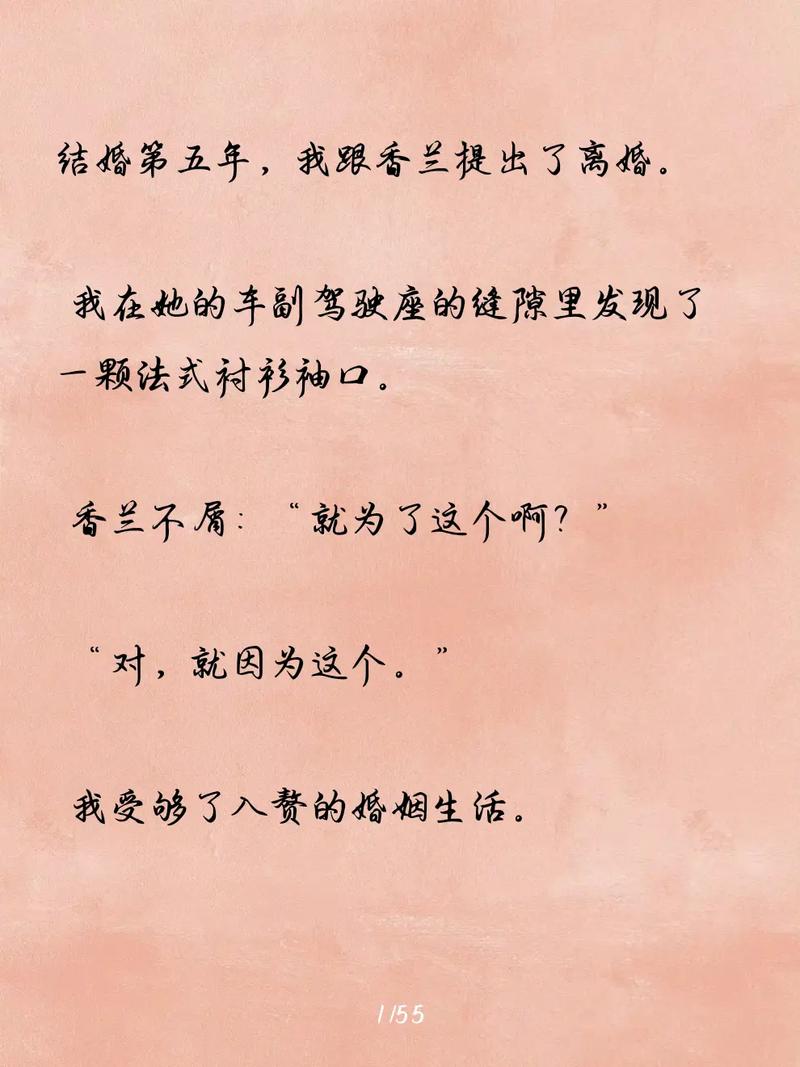 结婚第五年，我跟香兰提出了离婚。
我在她的车副驾驶座的缝隙里发现了
一颗法式衬衫袖口。
香兰不屑：“就为了这个啊？”
“对，就因为这个。”
我受够了入赘的婚姻生活。
1/55